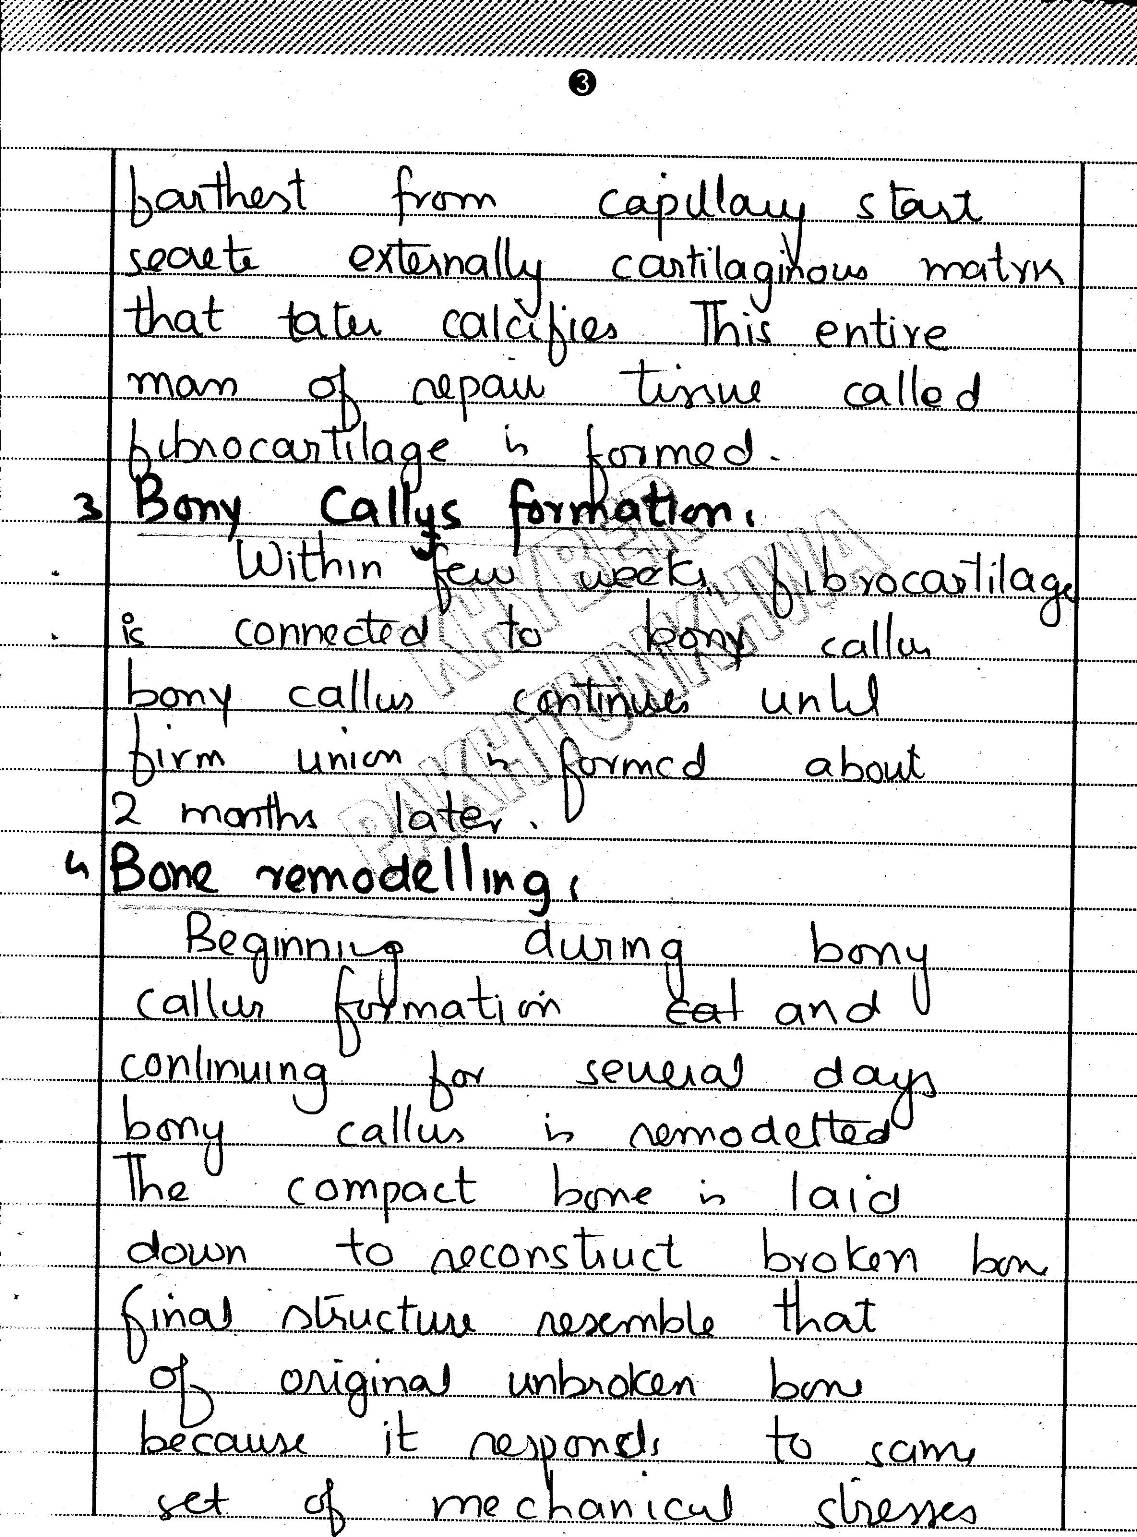 3
farthest from capillary start
secrete externally cartilaginous matrix
that later calcifies This entire
mass of repair tissue called
fibrocartilage is formed.
3 Bony Callus formation.
Within few weeks fibrocartilage
is connected to bony callus
bony callus continues until
firm union is formed about
2 months later.
4 Bone remodelling.
Beginning during bony
callus formation cat and
continuing for several days
bony callus is remodelled
The compact bone is laid
down to reconstruct broken bone
final structure resemble that
of original unbroken bone
because it responds to same
set of mechanical stresses
KHYBER
PAKHTUNKHWA